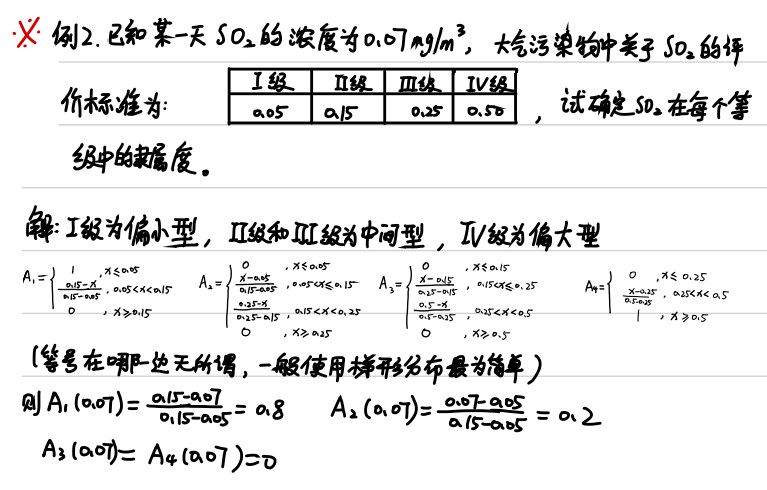 ※ 例2. 已知某一天SO₂的浓度为0.07mg/m³, 大气污染物中关于SO₂的评
价标准为: I级 II级 III级 IV级
0.05 0.15 0.25 0.50 , 试确定SO₂在每个等
级中的隶属度。
解: I级为偏小型, II级和III级为中间型, IV级为偏大型
A₁={ 1 , x≤0.05
(0.15-x)/(0.15-0.05) , 0.05<x<0.15
0 , x≥0.15
A₂={ 0 , x≤0.05
(x-0.05)/(0.15-0.05) , 0.05<x≤0.15
(0.25-x)/(0.25-0.15) , 0.15<x<0.25
0 , x≥0.25
A₃={ 0 , x≤0.15
(x-0.15)/(0.25-0.15) , 0.15<x≤0.25
(0.5-x)/(0.5-0.25) , 0.25<x<0.5
0 , x≥0.5
A₄={ 0 , x≤0.25
(x-0.25)/(0.5-0.25) , 0.25<x<0.5
1 , x≥0.5
(等号在哪一边无所谓, 一般使用梯形分布最为简单)
则A₁(0.07)=(0.15-0.07)/(0.15-0.05)=0.8 A₂(0.07)=(0.07-0.05)/(0.15-0.05)=0.2
A₃(0.07)=A₄(0.07)=0